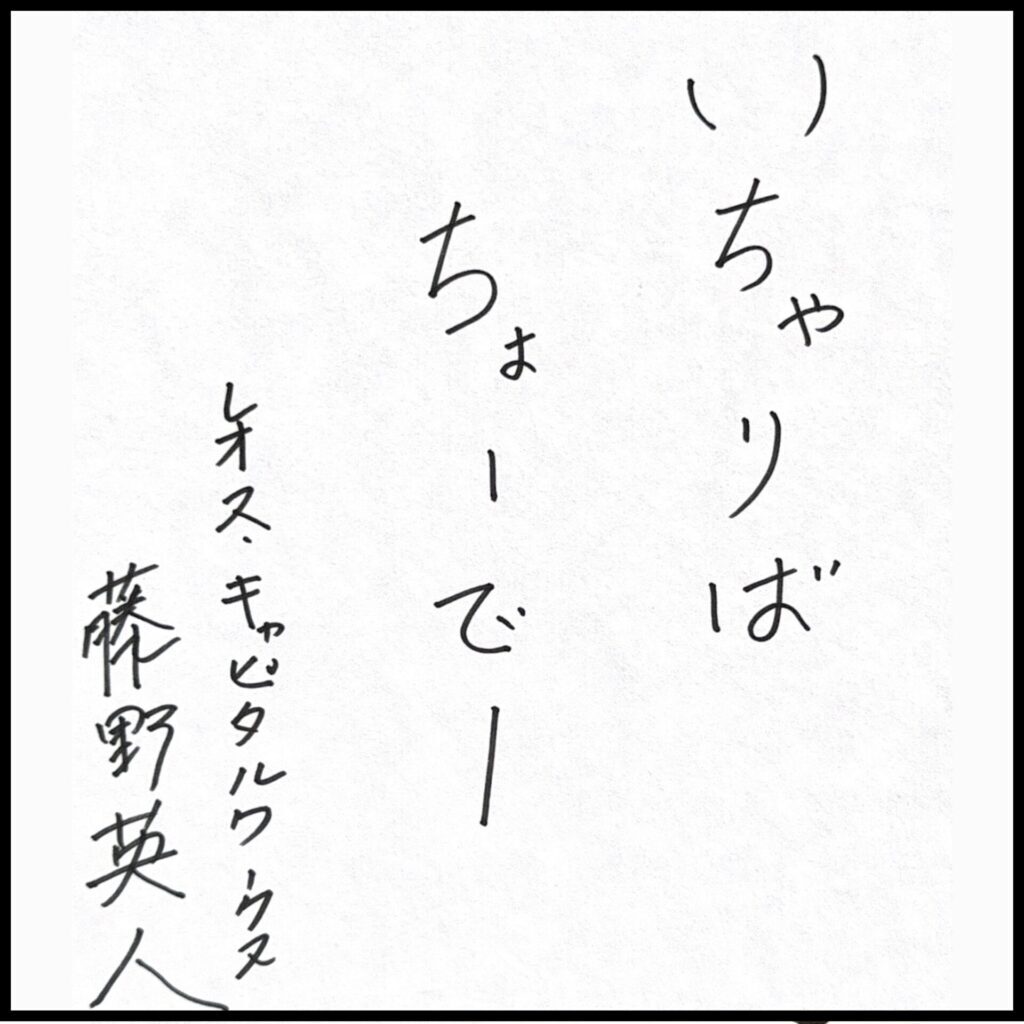 いちゃりば
ちょーでー
レオス・キャピタルワークス
藤野英人